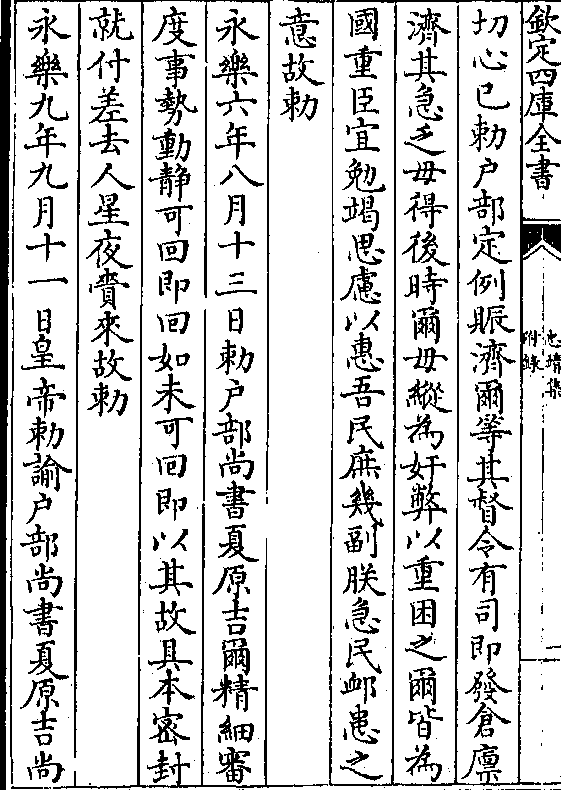 欽定四庫全書
忠靖集
附錄
二
切心已勅户部定例賑濟爾等其督令有司即發倉廪
濟其急乏毋得後時爾毋縱為奸弊以重困之爾皆為
國重臣宜勉竭思慮以惠吾民庶幾副朕急民䘏患之
意故勅
永樂六年八月十三日勅户部尚書夏原吉爾精細審
度事勢動静可回即回如未可回即以其故具本密封
就付差去人星夜賫來故勅
永樂九年九月十一日皇帝勅諭户部尚書夏原吉尚